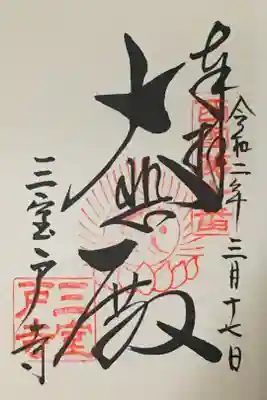 令和二年三月十七日
奉拝
大悲殿
三室戸寺
三室戸寺